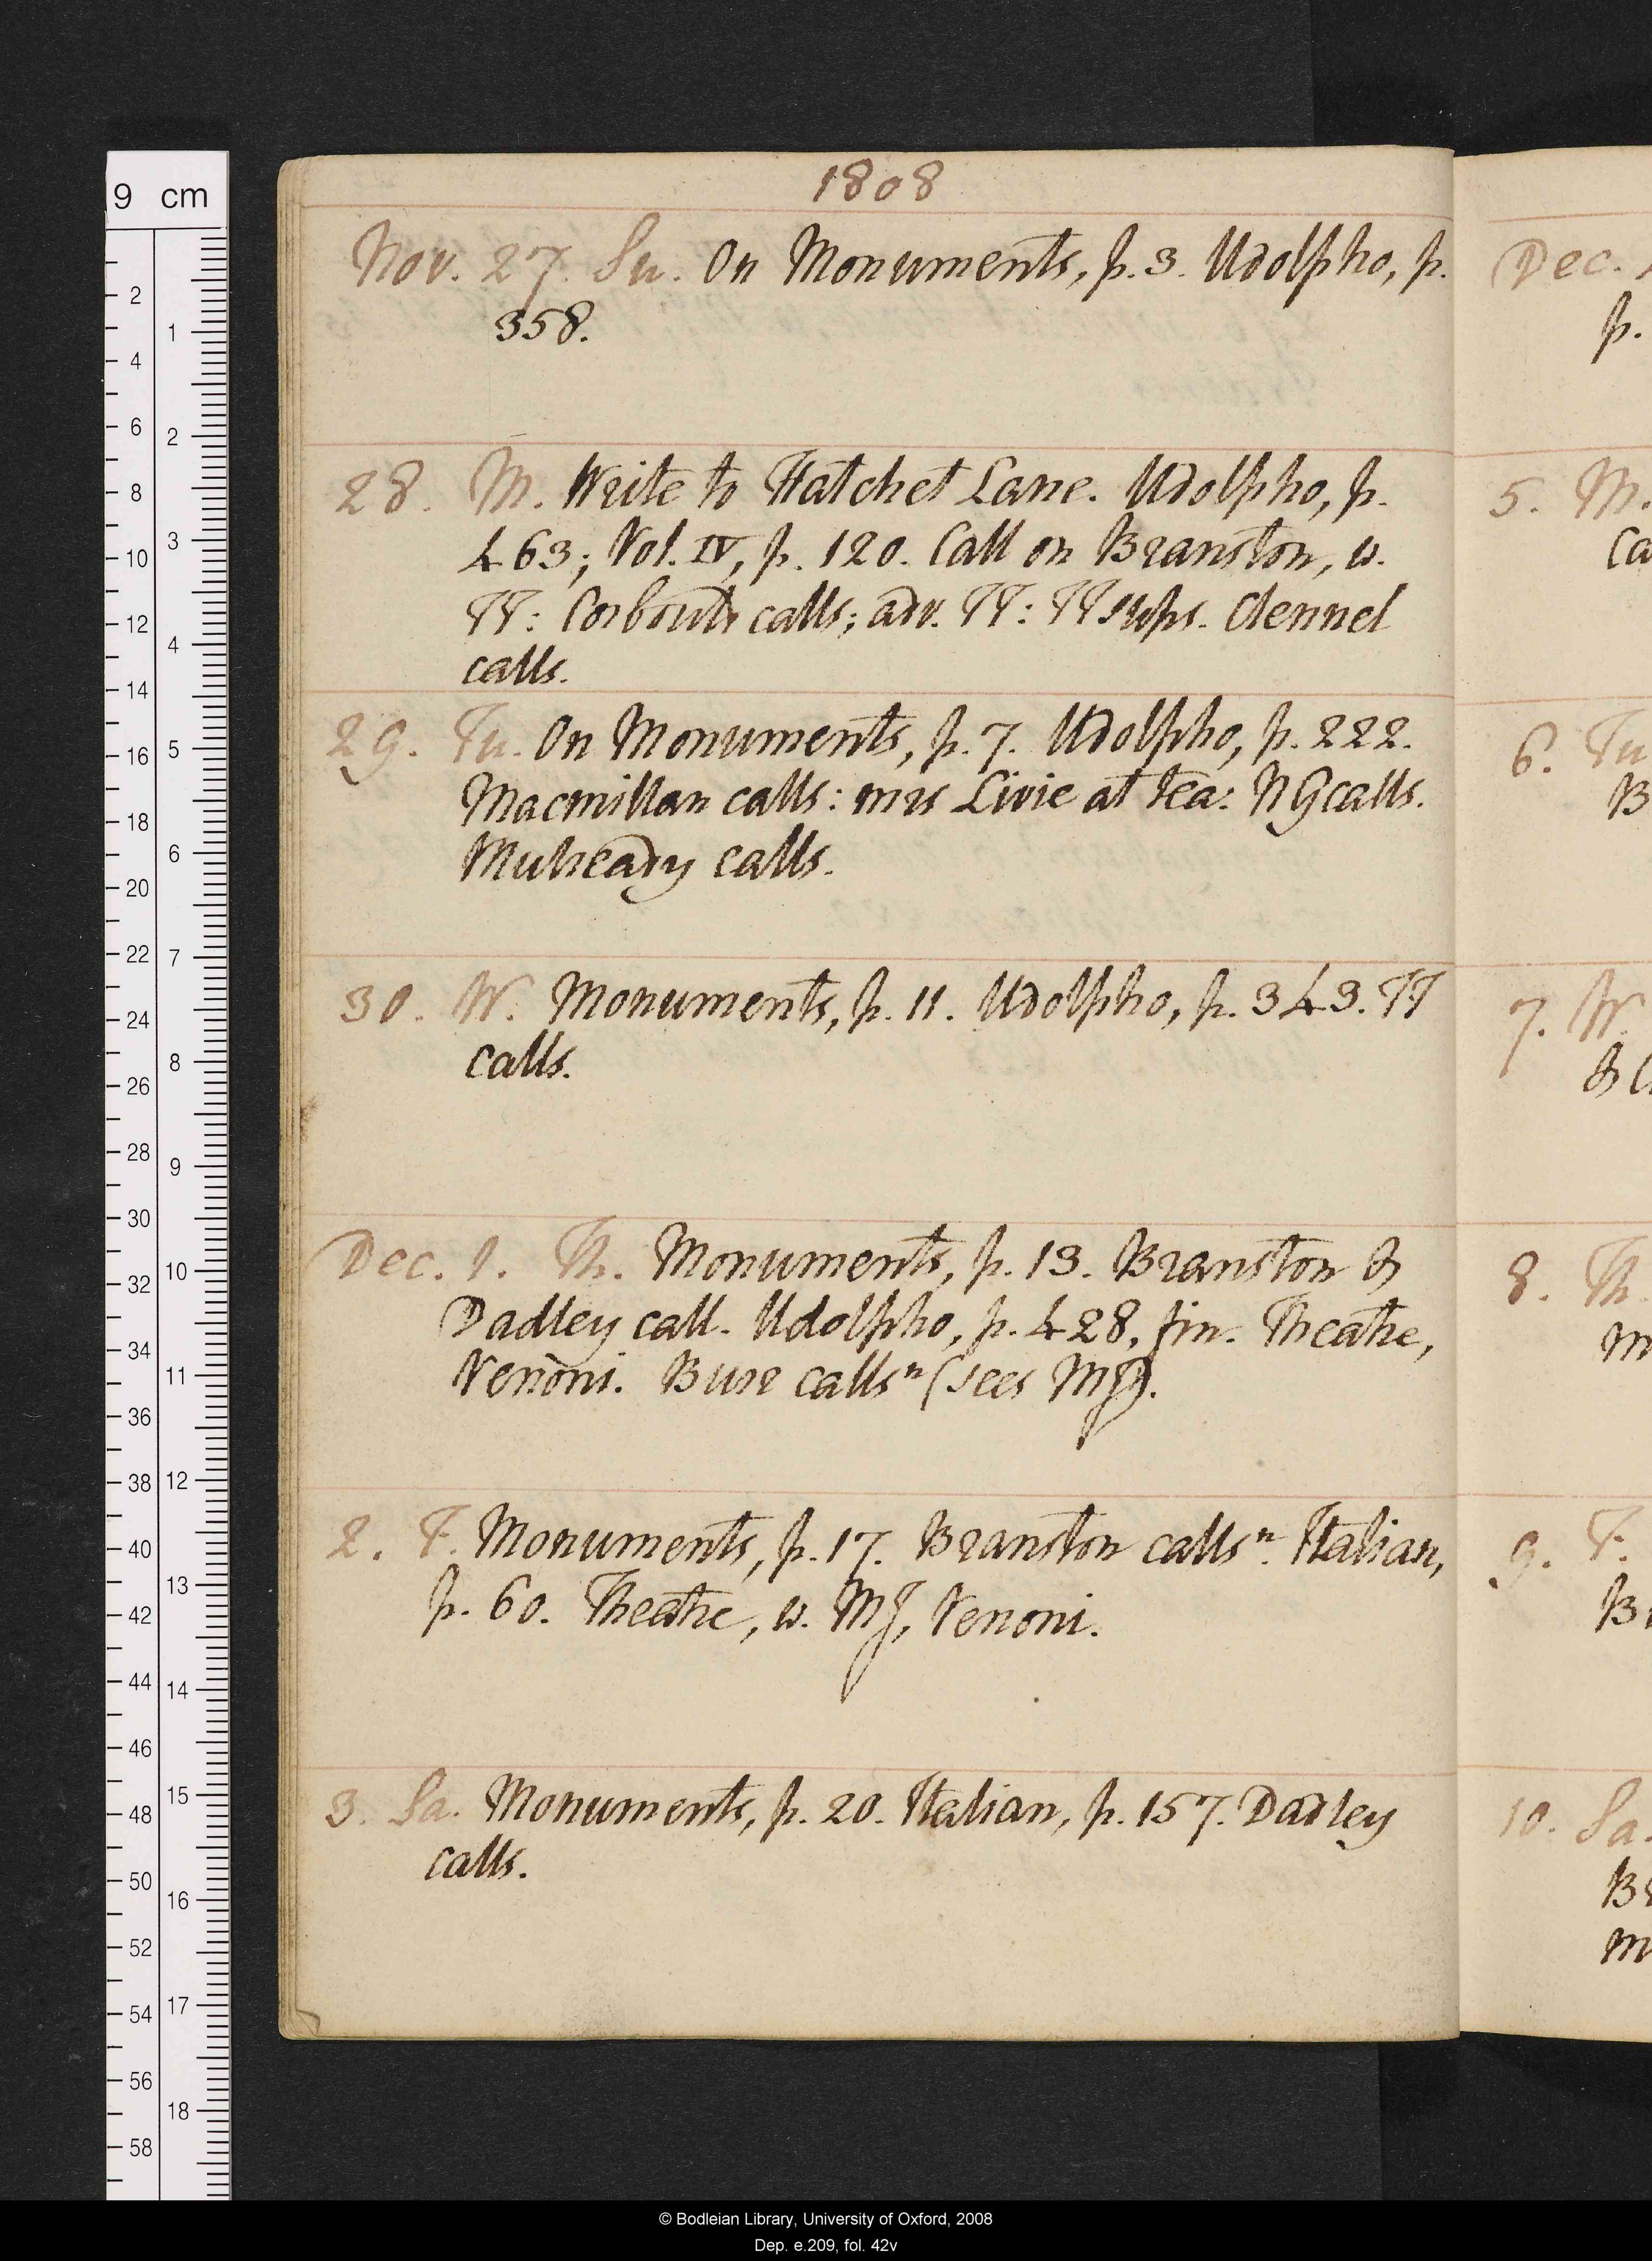 1808
Nov. 27. Su. On Monuments, p. 3. Udolpho, p.
358.
28. M. Write to Hatchet Lane. Udolpho, p.
463; Vol. IV, p. 120. Call on Branston, w.
TT: calls; adv. TT: TT sups. Clennel
calls.
29. Tu. On Monuments, p. 7. Udolpho, p. 222.
Macmillan calls: mrs Livie at tea: NG calls.
Mulready calls.
30. W. Monuments, p. 11. Udolpho, p. 343. TT
calls.
Dec. 1. Th. Monuments, p. 13. Branston &
Dadley call. Udolpho, p. 428, fin. Theatre,
Venoni. Burr callsⁿ (sees MJ).
2. F. Monuments, p. 17. Branston callsⁿ. Italian,
p. 60. Theatre, w. MJ, Venoni.
3. Sa. Monuments, p. 20. Italian, p. 157. Dadley
calls.
Dec.
p.
5. M.
6. Tu
7. W
8. Th.
9. F.
10. Sa.
9 cm
2 4 6 8 10 12 14 16 18 20 22 24 26 28 30 32 34 36 38 40 42 44 46 48 50 52 54 56 58
1 2 3 4 5 6 7 8 9 10 11 12 13 14 15 16 17 18
© Bodleian Library, University of Oxford, 2008
Dep. e.209, fol. 42v